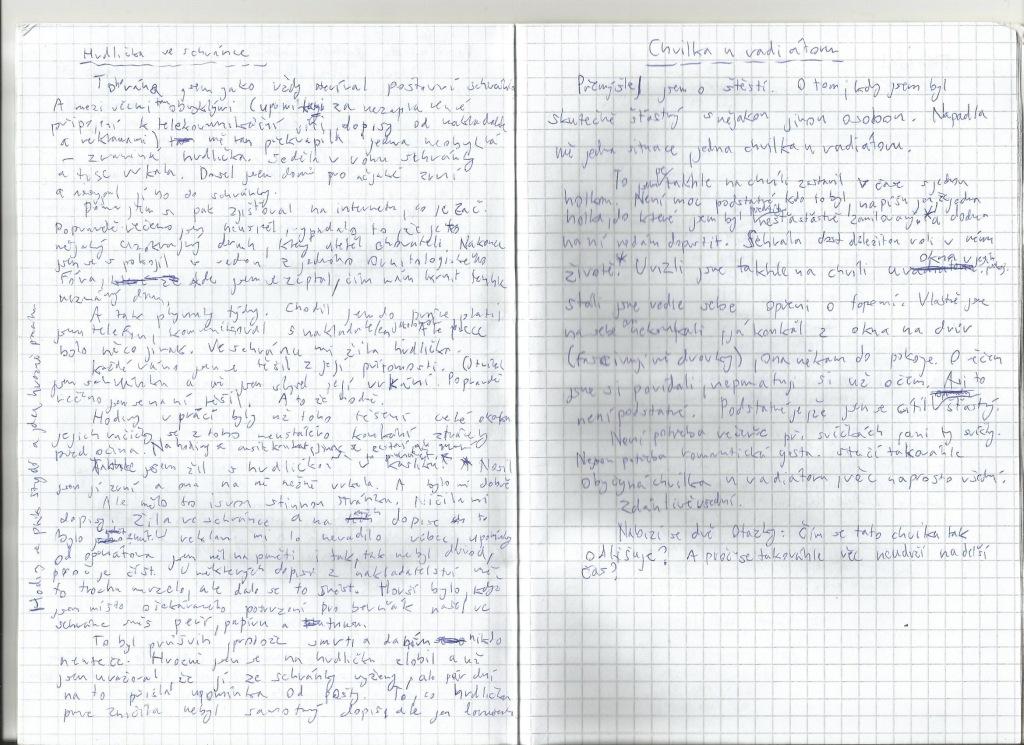 Hrdlička ve schránce
To ráno jsem jako vždy otevíral poštovní schránku
A mezi věcmi obvyklými (upomínkami za nezaplacené
připojení k telekomunikační síti, dopisy od nakladatele
a reklamami) mě tam překvapila jedna neobvyklá
– zraněná hrdlička. Seděla v rohu schránky
a tiše vrkala. Došel jsem domů pro nějaké zrní
a nasypal jí ho do schránky.
jsem si pak zjišťoval na internetu, co je zač.
Popravdě řečeno jsem neuspěl, vypadalo to, že je to
nějaký cizokrajný druh, který utekl chovateli. Nakonec
jsem se s pokojil s radou z jednoho Ornitologického
Fóra, kde jsem se zeptal, čím mám krmit tenhle
neznámý druh.
A tak plynuly týdny. Chodil jsem do práce, platil
jsem telefon, komunikoval s nakladatelem, ale přece
bylo něco jinak. Ve schránce mi žila hrdlička.
Každé ráno jsem se těšil z její přítomnosti. Otevřel
jsem schránku a už jsem slyšel její vrkání. Popravdě
řečeno jsem se na ni těšil. A to že hodně.
Hodiny v práci byly už toho těšení celé
jejich ručičky se z toho neustálého koukání ztrácely
před očima.
jsem žil s hrdličkou v Nosil
jsem jí zrní a ona na mě něžně vrkala. A bylo mi dobře
Ale mělo to i svou stinnou stránku. Ničila mi
dopisy. Žila ve schránce a na dopise to
bylo U reklam mi to nevadilo vůbec, upomínky
od operátora jsem měl na paměti i tak, tak nebyl důvod,
proč je číst. U některých dopisů z nakladatelství mě
to trochu mrzelo, ale dalo se to snést. Horší bylo, když
jsem místo očekávaného potvrzení pro berňák našel ve
schránce směs peří, papíru a trusu.
To byl průšvih, protože smrti a daním nikdo
neuteče. Hrozně jsem se na hrdličku zlobil a už
jsem uvažoval, že ji ze schránky vyženu, ale pár dní
na to přišla upomínka od pošty. To, co hrdlička
prve zničila nebyl samotný dopis, ale jen
Chvilka u radiátoru
Přemýšlel jsem o štěstí. O tom, kdy jsem byl
skutečně šťastný s nějakou jinou osobou. Napadla
mě jedna situace, jedna chvilka u radiátoru.
To jsem se takhle na chvíli zastavil v čase s jednou
holkou. Není moc podstatné, kdo to byl, napíšu jen, že jedna
holka, do které jsem byl nešťastně zamilovaný a dodnes
na ni nedám dopustit. Sehrála dost důležitou roli v mém
životě.* Uvízli jsme takhle na chvíli u okna v
stáli jsme vedle sebe opření o topení. Vlastně jsme
na sebe ani nekoukali, já koukal z okna na dvůr
(fascinující dvorky), ona někam do pokoje. O něčem
jsme si povídali, nepamatuju si už o čem. Ani to
není podstatné. Podstatné je, že jsem se cítil šťastný.
Není potřeba večeře při svíčkách, ani ty svíčky.
Nejsou potřeba romantická gesta. Stačí takováhle
obyčejná chvilka u radiátoru, věc naprosto všední.
Zdánlivě všední.
Nabízí se dvě otázky: Čím se tato chvilka tak
odlišuje? A proč se takováhle věc neudrží na delší
čas?